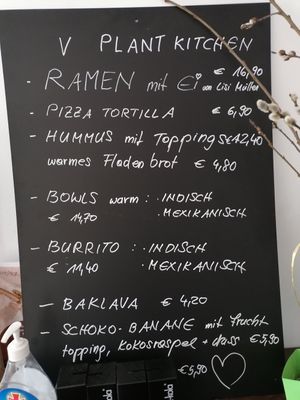 V PLANT KITCHEN
- RAMEN mit Ei € 16,90
von Lisi Müller
- PIZZA TORTILLA € 6,90
- HUMMUS mit Toppings € 12,40
warmes Fladenbrot € 4,80
- BOWLS warm: · INDISCH
€ 14,70 · MEXIKANISCH
- BURRITO: · INDISCH
€ 11,40 · MEXIKANISCH
- BAKLAVA € 4,20
- SCHOKO-BANANE mit Frucht
topping, Kokosraspel + dass € 5,90
€ 5,90